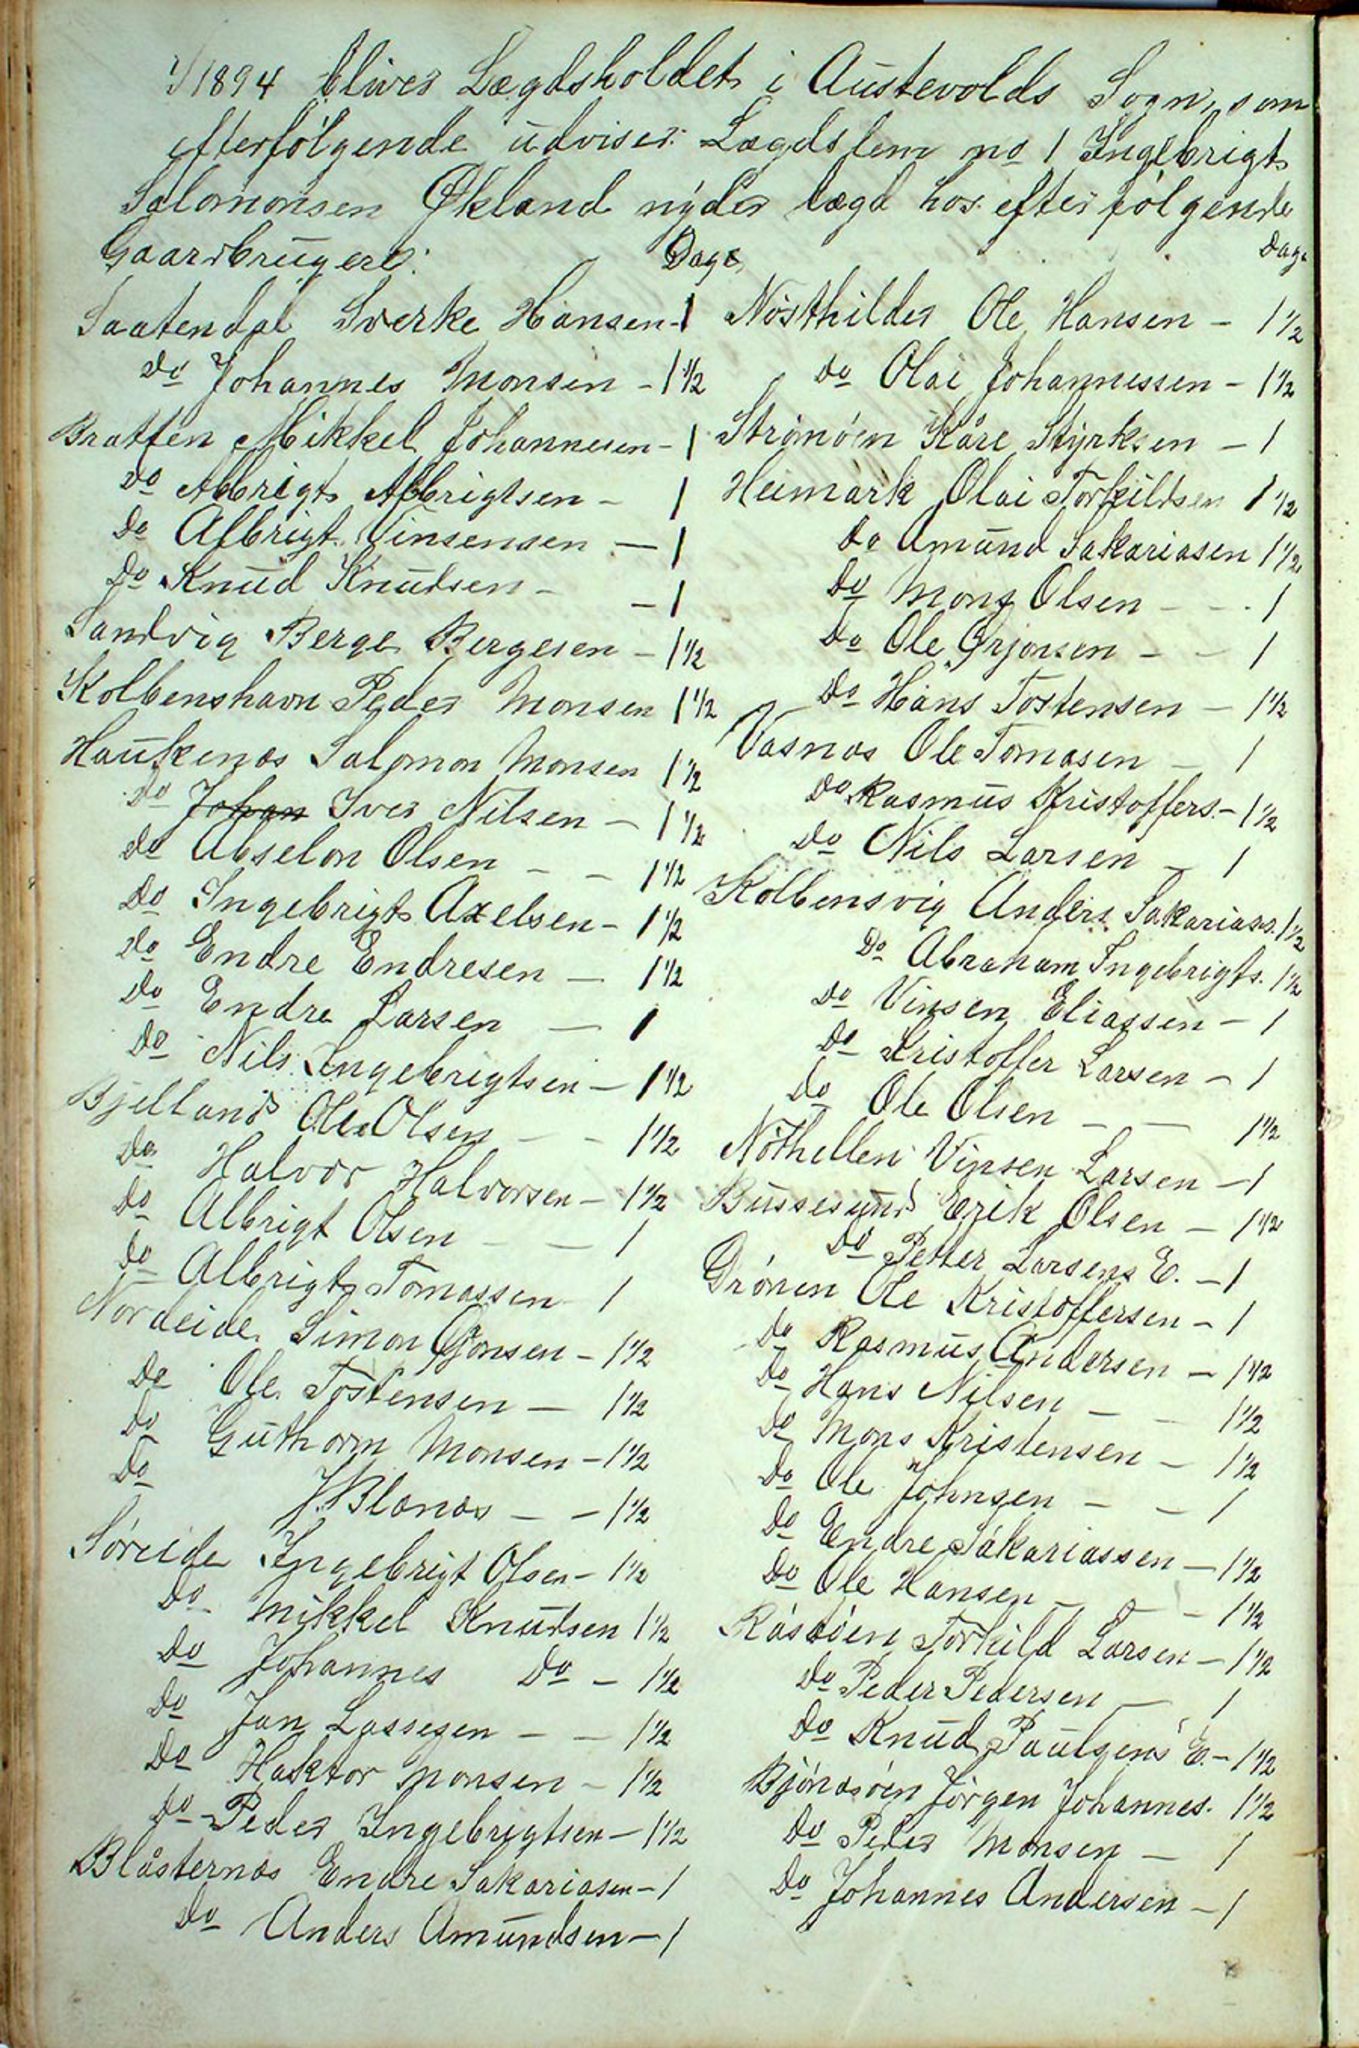 1/1894 bliver Lægdsholdet i Austevolds Sogn, som
efterfölgende udviser: Lægdslem no 1 Ingebrigt
Salomonsen Økland nyder lægd hos efterfölgende
Gaardbrugere: Dage
Saatendal Sverke Hansen - 1
Do Johannes Monsen - 1 1/2
Bratten Mikkel Johannesen - 1
Do Albrigt Albrigtsen - 1
Do Albrigt Vinsensen - 1
Do Knud Knudsen - - 1
Sandvig Berge Bergesen - 1 1/2
Kolbenshavn Peder Monsen 1 1/2
Haukenæs Salomon Monsen 1 1/2
Do Johan Iver Nilsen - 1 1/2
do Abselon Olsen - - 1 1/2
Do Ingebrigt Axelsen - 1 1/2
do Endre Endresen - 1 1/2
do Endre Larsen - 1
Do Nils Ingebrigtsen - 1 1/2
Bjelland Ole Olsen - - 1 1/2
Do Halvor Halvorsen - 1 1/2
Do Albrigt Olsen - - 1
do Albrigt Tomassen 1
Nordeide Simon Gjonsen - 1 1/2
Do Ole Tostensen - 1 1/2
do Guthorm Monsen - 1 1/2
Do J. Blænæs - - 1 1/2
Söreide Ingebrigt Olsen - 1 1/2
Do Mikkel Knudsen 1 1/2
Do Johannes Do - 1 1/2
Do Jan Lassesen - - 1 1/2
Do Haktor Monsen - 1 1/2
Do Peder Ingebrigtsen - 1 1/2
Blåsternæs Endre Sakariasen - 1
Do Anders Amundsen - 1
Dage
Nösthilder Ole Hansen - 1 1/2
Do Olai Johannessen - 1 1/2
Strömöen Kåre Styrksen - 1
Heimark Olai Torkildsen 1 1/2
do Amund Sakariasen 1 1/2
Do Mons Olsen - - 1
Do Ole Ørjonsen - - 1
Do Hans Tostensen - 1 1/2
Vasnæs Ole Tomasen - 1
Do Rasmus Kristoffers. - 1 1/2
Do Nils Larsen - 1
Kolbensvig Anders Sakarias. 1 1/2
Do Abraham Ingebrigts. 1 1/2
Do Vinsen Eliassen - 1
Do Kristoffer Larsen - 1
Do Ole Olsen - - 1 1/2
Nöthellen Vinsen Larsen - 1
Bussesund Erik Olsen - 1 1/2
Do Petter Larsens E. - 1
Drönen Ole Kristoffersen - 1
do Rasmus Andersen - 1 1/2
Do Hans Nilsen - - 1 1/2
Do Mons Kristensen - 1 1/2
Do Ole Johnsen - - 1
Do Endre Sakariassen - 1 1/2
Do Ole Hansen - - - 1 1/2
Rösöen Torkild Larsen - 1 1/2
Do Peder Pedersen - 1
Do Knud Paulsens E. - 1 1/2
Björnöen Jörgen Johannes. 1 1/2
Do Peder Monsen - 1
Do Johannes Andersen - 1